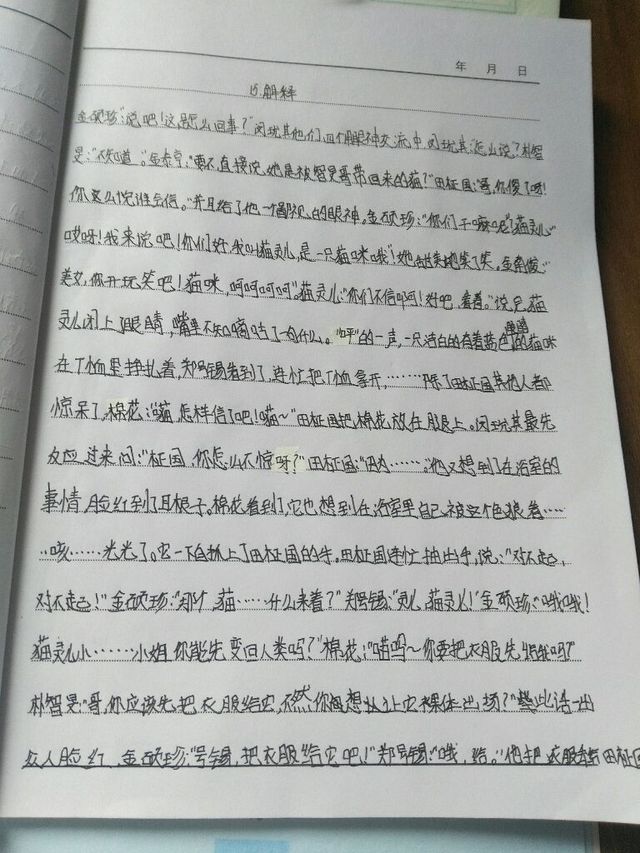 年 月 日
15.解释
金硕珍:“说吧!这是怎么回事?”闵玧其他们四个眼神交流中闵玧其:怎么说?朴智
旻:“不知道。”金泰亨:“要不直接说她是被智旻哥带回来的猫?”田柾国:“哥,你傻了呀!
你这么说谁会信。”并且给了他一个鄙视的眼神。金硕珍:“你们干嘛呢”!猫灵儿:“
哎呀!我来说吧!你们好我叫猫灵儿,是一只猫咪哦”!她甜美地笑了笑。金南俊:“
美女,你开玩笑吧!猫咪,呵呵呵呵”。猫灵儿:“你们不信啊!好吧,看着。”说完猫
灵儿闭上了眼睛,嘴里不知嘀咕了句什么。“呯”的一声,一只洁白的有着蓝色瞳的猫咪
在T恤里挣扎着,郑号锡看到了,连忙把T恤拿开,………除了田柾国其他人都
惊呆了,棉花:“喵,怎样信了吧!喵~”田柾国把棉花放在腿上。闵玧其最先
反应过来问:“柾国,你怎么不惊呀?”田柾国:“因为……”,他又想到了在浴室的
事情,脸红到了耳根子。棉花看到了,它也想到在浴室里自己被这个色狼看……
……咳……光光了。它一下自抓上了田柾国的手。田柾国连忙抽出手,说:“对不起,
对不起!”金硕珍:“那个,猫……什么来着?”郑号锡:“灵儿,猫灵儿!”金硕珍:“哦哦!
猫灵儿小……小姐,你能先变回人类吗?”棉花:“喵呜~你要把衣服先给我吗?”
朴智旻:“哥,你应该先把衣服给它,不然,你想让它裸体出场?”此话一出
众人脸红,金硕珍:“号锡,把衣服给它吧!”郑号锡:“哦,给。”他把衣服递给田柾国